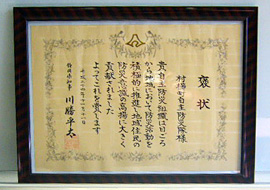 褒状
村櫛町自主防災隊様
貴自主防災組織は日ごろ
から地域において防災活動を
積極的に推進し地域住民の
防災意識の高揚に大きく
貢献されました
よってこれを賞します
静岡県知事 川勝平太